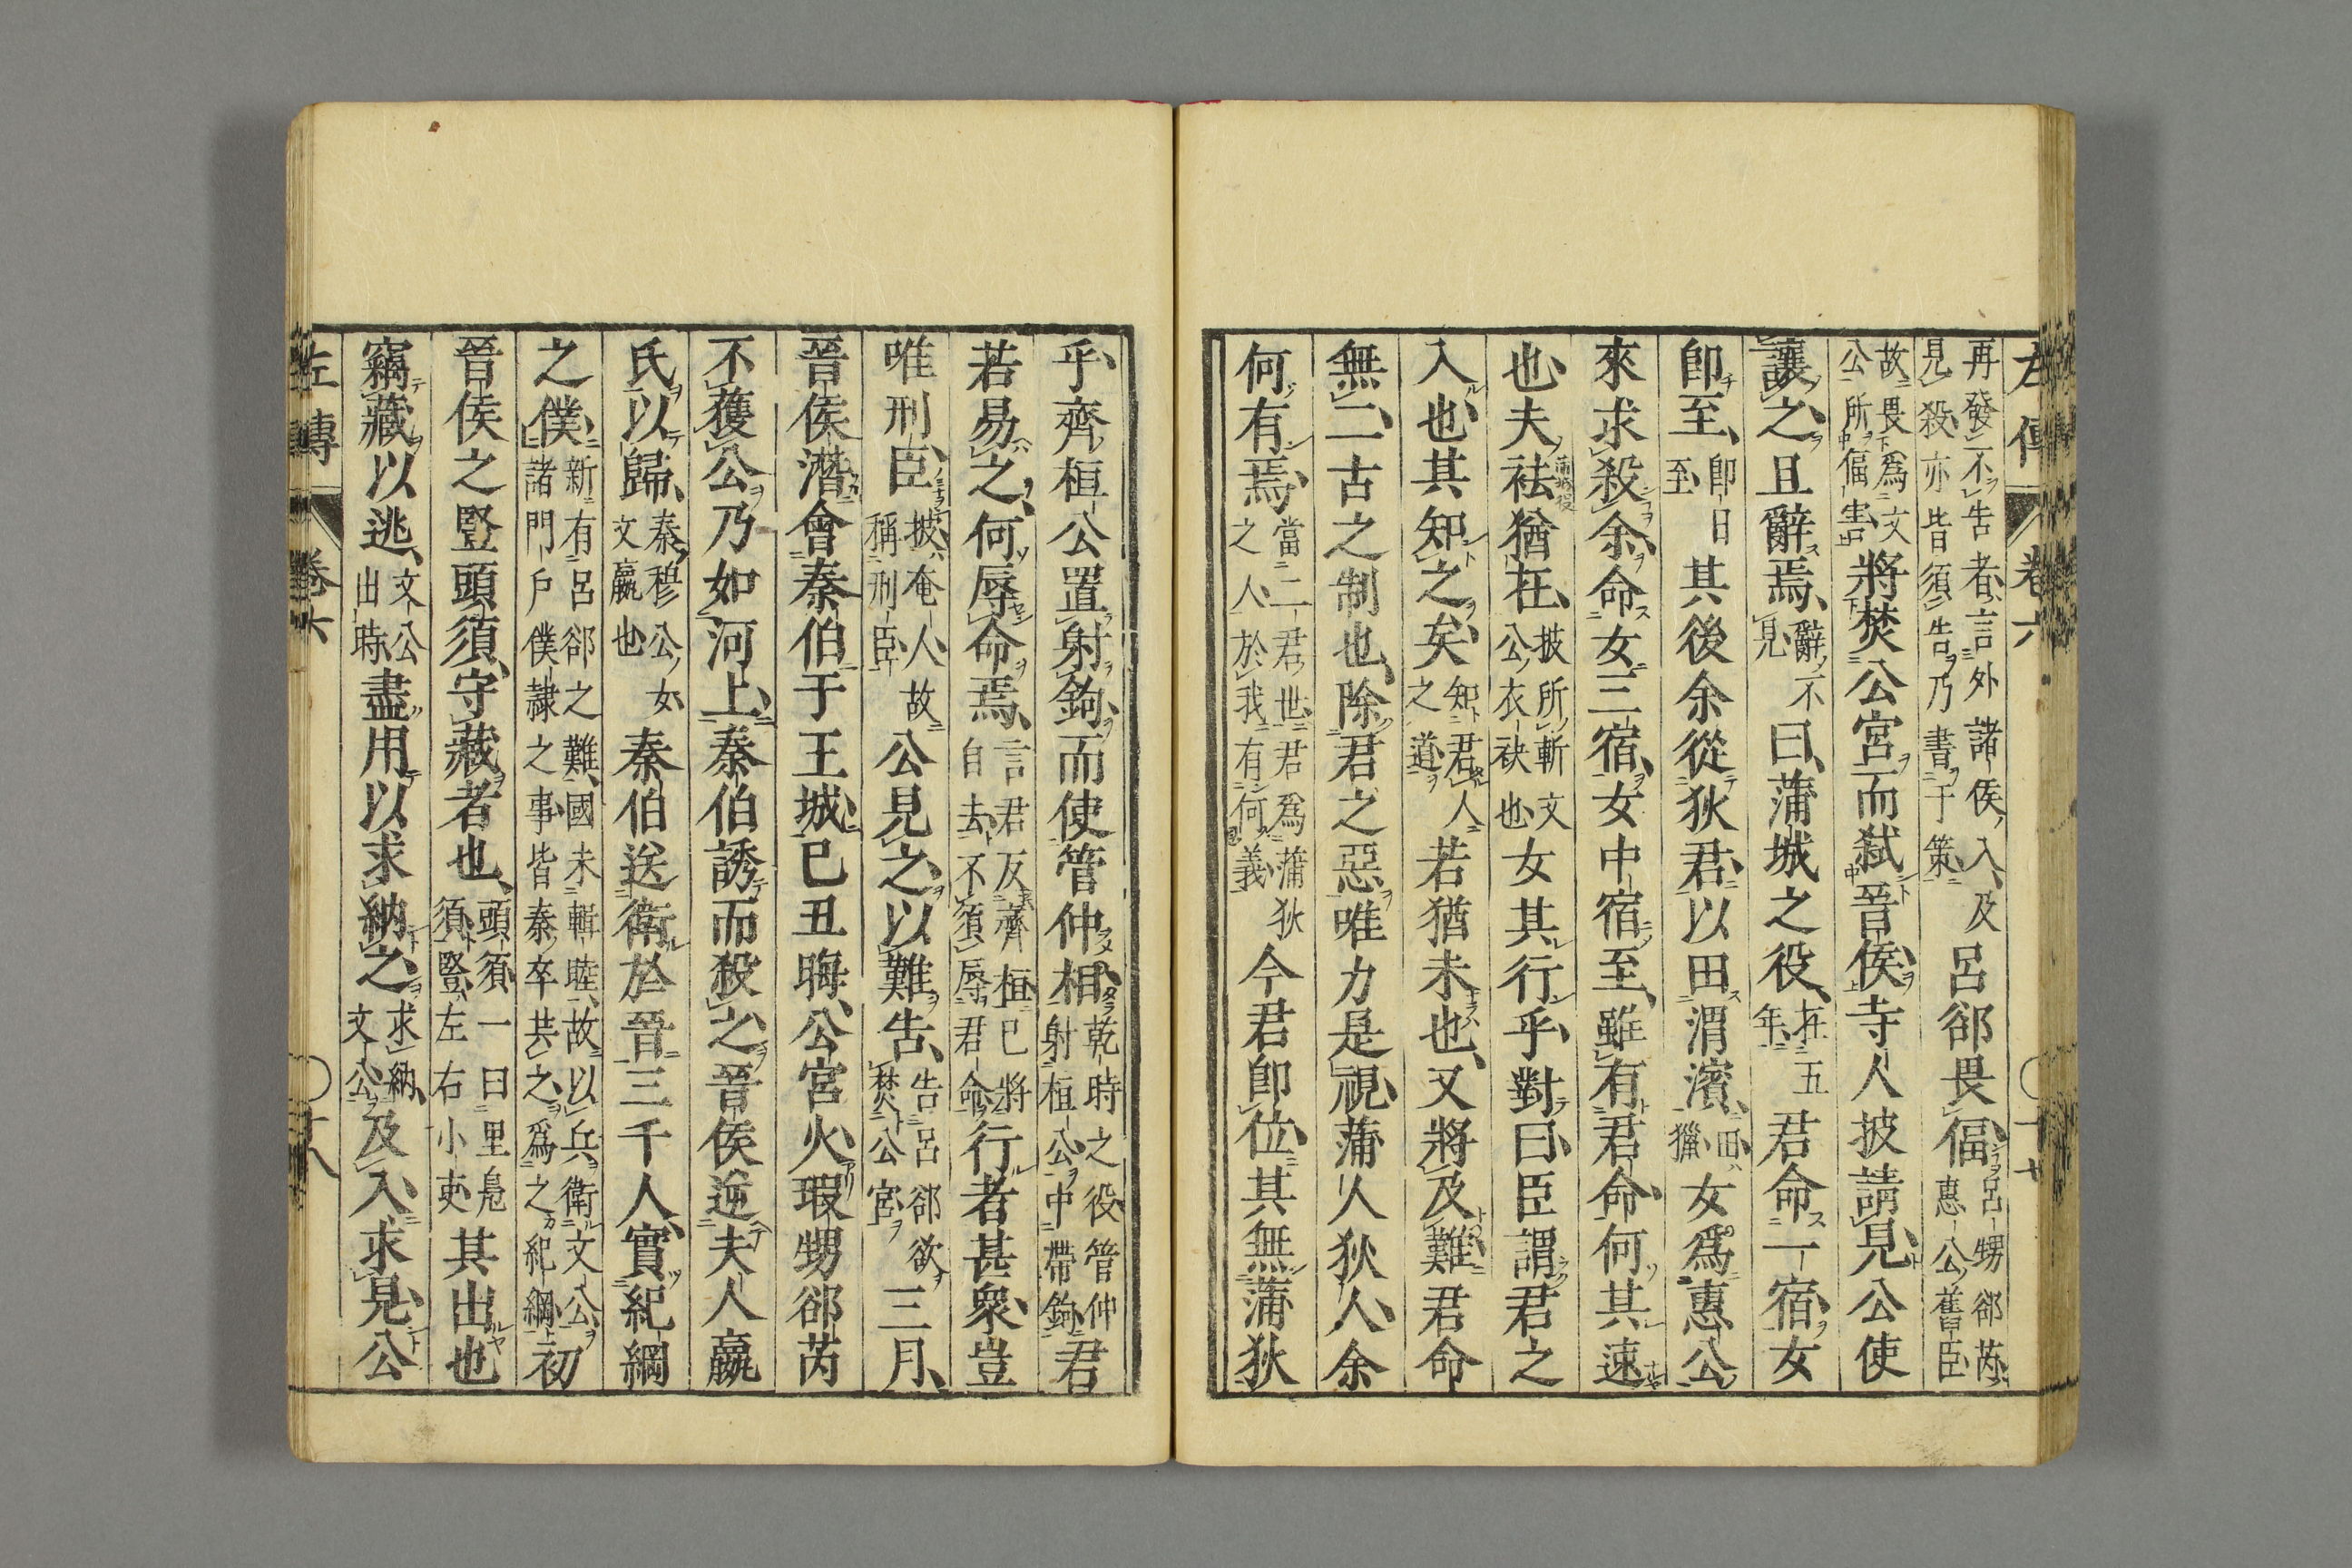 左傳 卷六 ○十七
再發不告者言外諸侯入及見殺亦皆須告乃書于策呂郤畏偪呂甥郤芮惠公舊臣
故畏爲文公所偪害將焚公宮而弑晉侯寺人披請見公使
讓之且辭焉辭不見曰蒲城之役在五年君命一宿女
卽至卽日至其後余從狄君以田渭濱田獵女爲惠公
來求殺余命女三宿女中宿至雖有君命何其速
也夫袪猶在披所斬文公衣袂也女其行乎對曰臣謂君之
入也其知之矣知君人之道若猶未也又將及難君命
無二古之制也除君之惡唯力是視蒲人狄人余
何有焉當二君世君爲蒲狄之人於我有何義今君卽位其無蒲狄
乎齊桓公置射鉤而使管仲相乾時之役管仲射桓公中帶鉤君
若易之何辱命焉言君反齊桓已將自去不須辱君命行者甚衆豈
唯刑臣披奄人故稱刑臣公見之以難告告呂郤欲焚公宮三月
晉侯潛會秦伯于王城已丑晦公宮火瑕甥郤芮
不獲公乃如河上秦伯誘而殺之晉侯逆夫人嬴
氏以歸秦穆公女文嬴也秦伯送衛於晉三千人實紀綱
之僕新有呂郤之難國未輯睦故以兵衛文公諸門戶僕隸之事皆秦卒共之爲之紀綱初
晉侯之豎頭須守藏者也頭須一曰里鳧須豎左右小吏其出也
竊藏以逃文公出時盡用以求納之求納文公及入求見公
左傳 卷六 ○十八